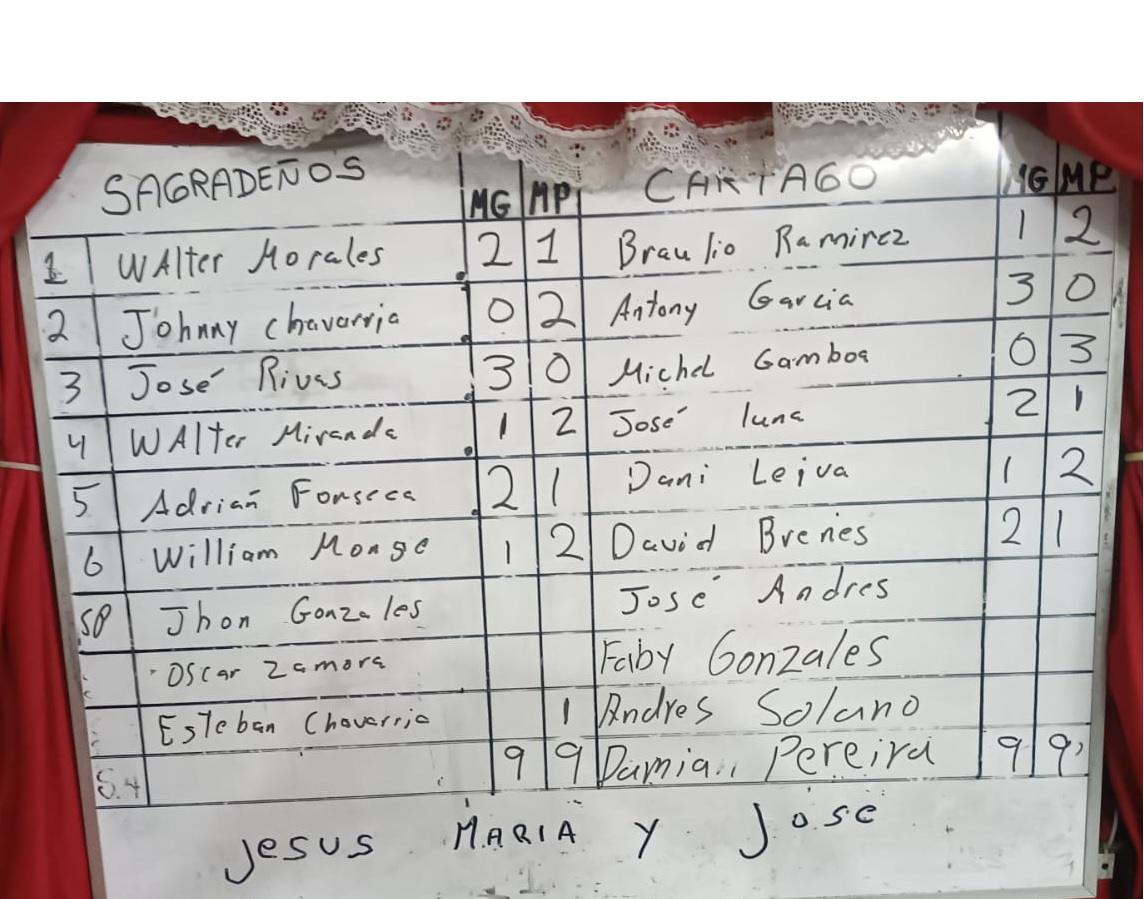 SAGRADEÑOS MG MP CARTAGO MG MP
1 WAlter Morales 2 1 Braulio Ramirez 1 2
2 Johnny chavarria 0 2 Antony Garcia 3 0
3 José Rivas 3 0 Michel Gamboa 0 3
4 WAlter Miranda 1 2 José luna 2 1
5 Adrian Fonseca 2 1 Dani Leiva 1 2
6 William Monge 1 2 David Brenes 2 1
S8 Jhon Gonzales José Andres
Oscar Zamora Faby Gonzales
Esteban Chavarria 1 Andres Solano
S.4 9 9 Damian Pereira 9 9
Jesus MARIA Y José